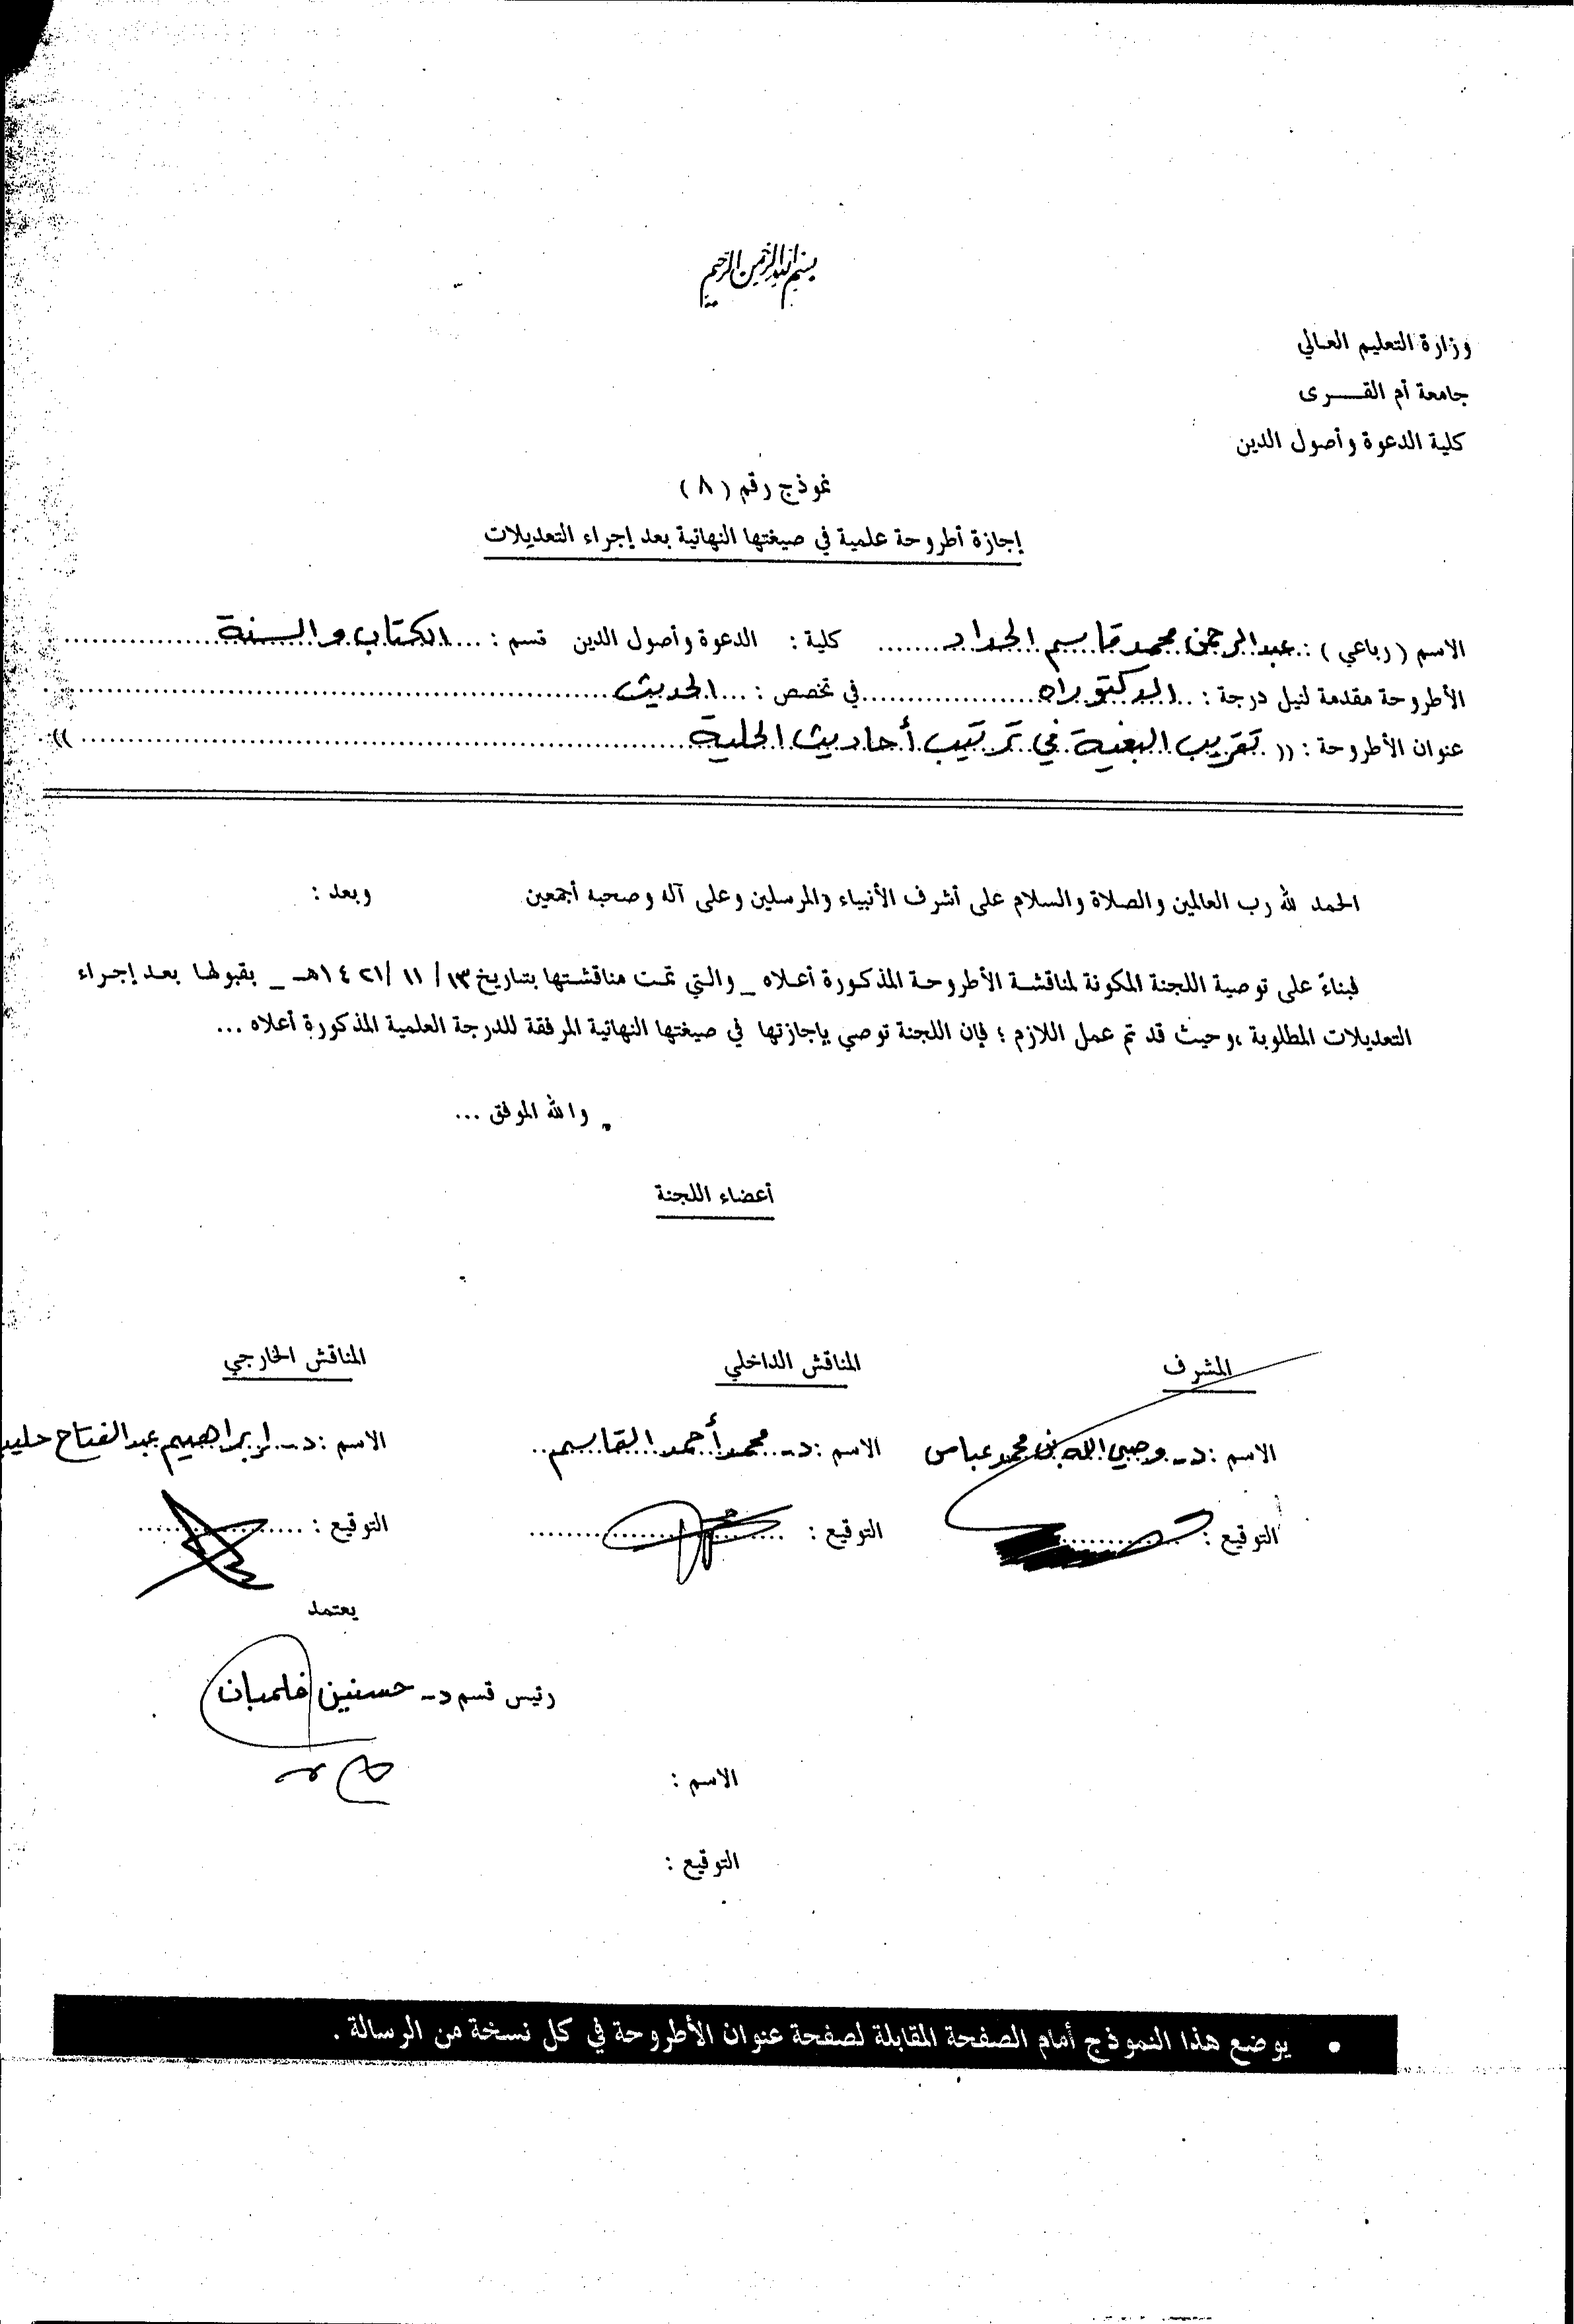 بسم الله الرحمن الرحيم
وزارة التعليم العالي
جامعة أم القــرى
كلية الدعوة وأصول الدين
نموذج رقم ( ٨ )
إجازة أطروحة علمية في صيغتها النهائية بعد إجراء التعديلات
الاسم ( رباعي ) : عبدالرحمن محمد قاسم الحداد كلية : الدعوة وأصول الدين قسم : الكتاب والسنة
الأطروحة مقدمة لنيل درجة : الدكتوراه في تخصص : الحديث
عنوان الأطروحة : (( تقريب البغية في ترتيب أحاديث الحلية ))
الحمد لله رب العالمين والصلاة والسلام على أشرف الأنبياء والمرسلين وعلى آله وصحبه أجمعين وبعد :
فبناءً على توصية اللجنة المكونة لمناقشة الأطروحة المذكورة أعلاه _ والتي تمت مناقشتها بتاريخ ١٣/ ١١ /١٤٢١هـ _ بقبولها بعد إجراء
التعديلات المطلوبة ،وحيث قد تم عمل اللازم ؛ فإن اللجنة توصي بإجازتها في صيغتها النهائية المرفقة للدرجة العلمية المذكورة أعلاه ...
والله الموفق ...
أعضاء اللجنة
المشرف المناقش الداخلي المناقش الخارجي
الاسم : د- وصي الله بن محمد عباس الاسم : د- محمد أحمد القاسم الاسم : د- إبراهيم عبدالفتاح
التوقيع : التوقيع : التوقيع :
يعتمد
رئيس قسم د- حسنين فلمبان
الاسم :
التوقيع :
• يوضع هذا النموذج أمام الصفحة المقابلة لصفحة عنوان الأطروحة في كل نسخة من الرسالة .